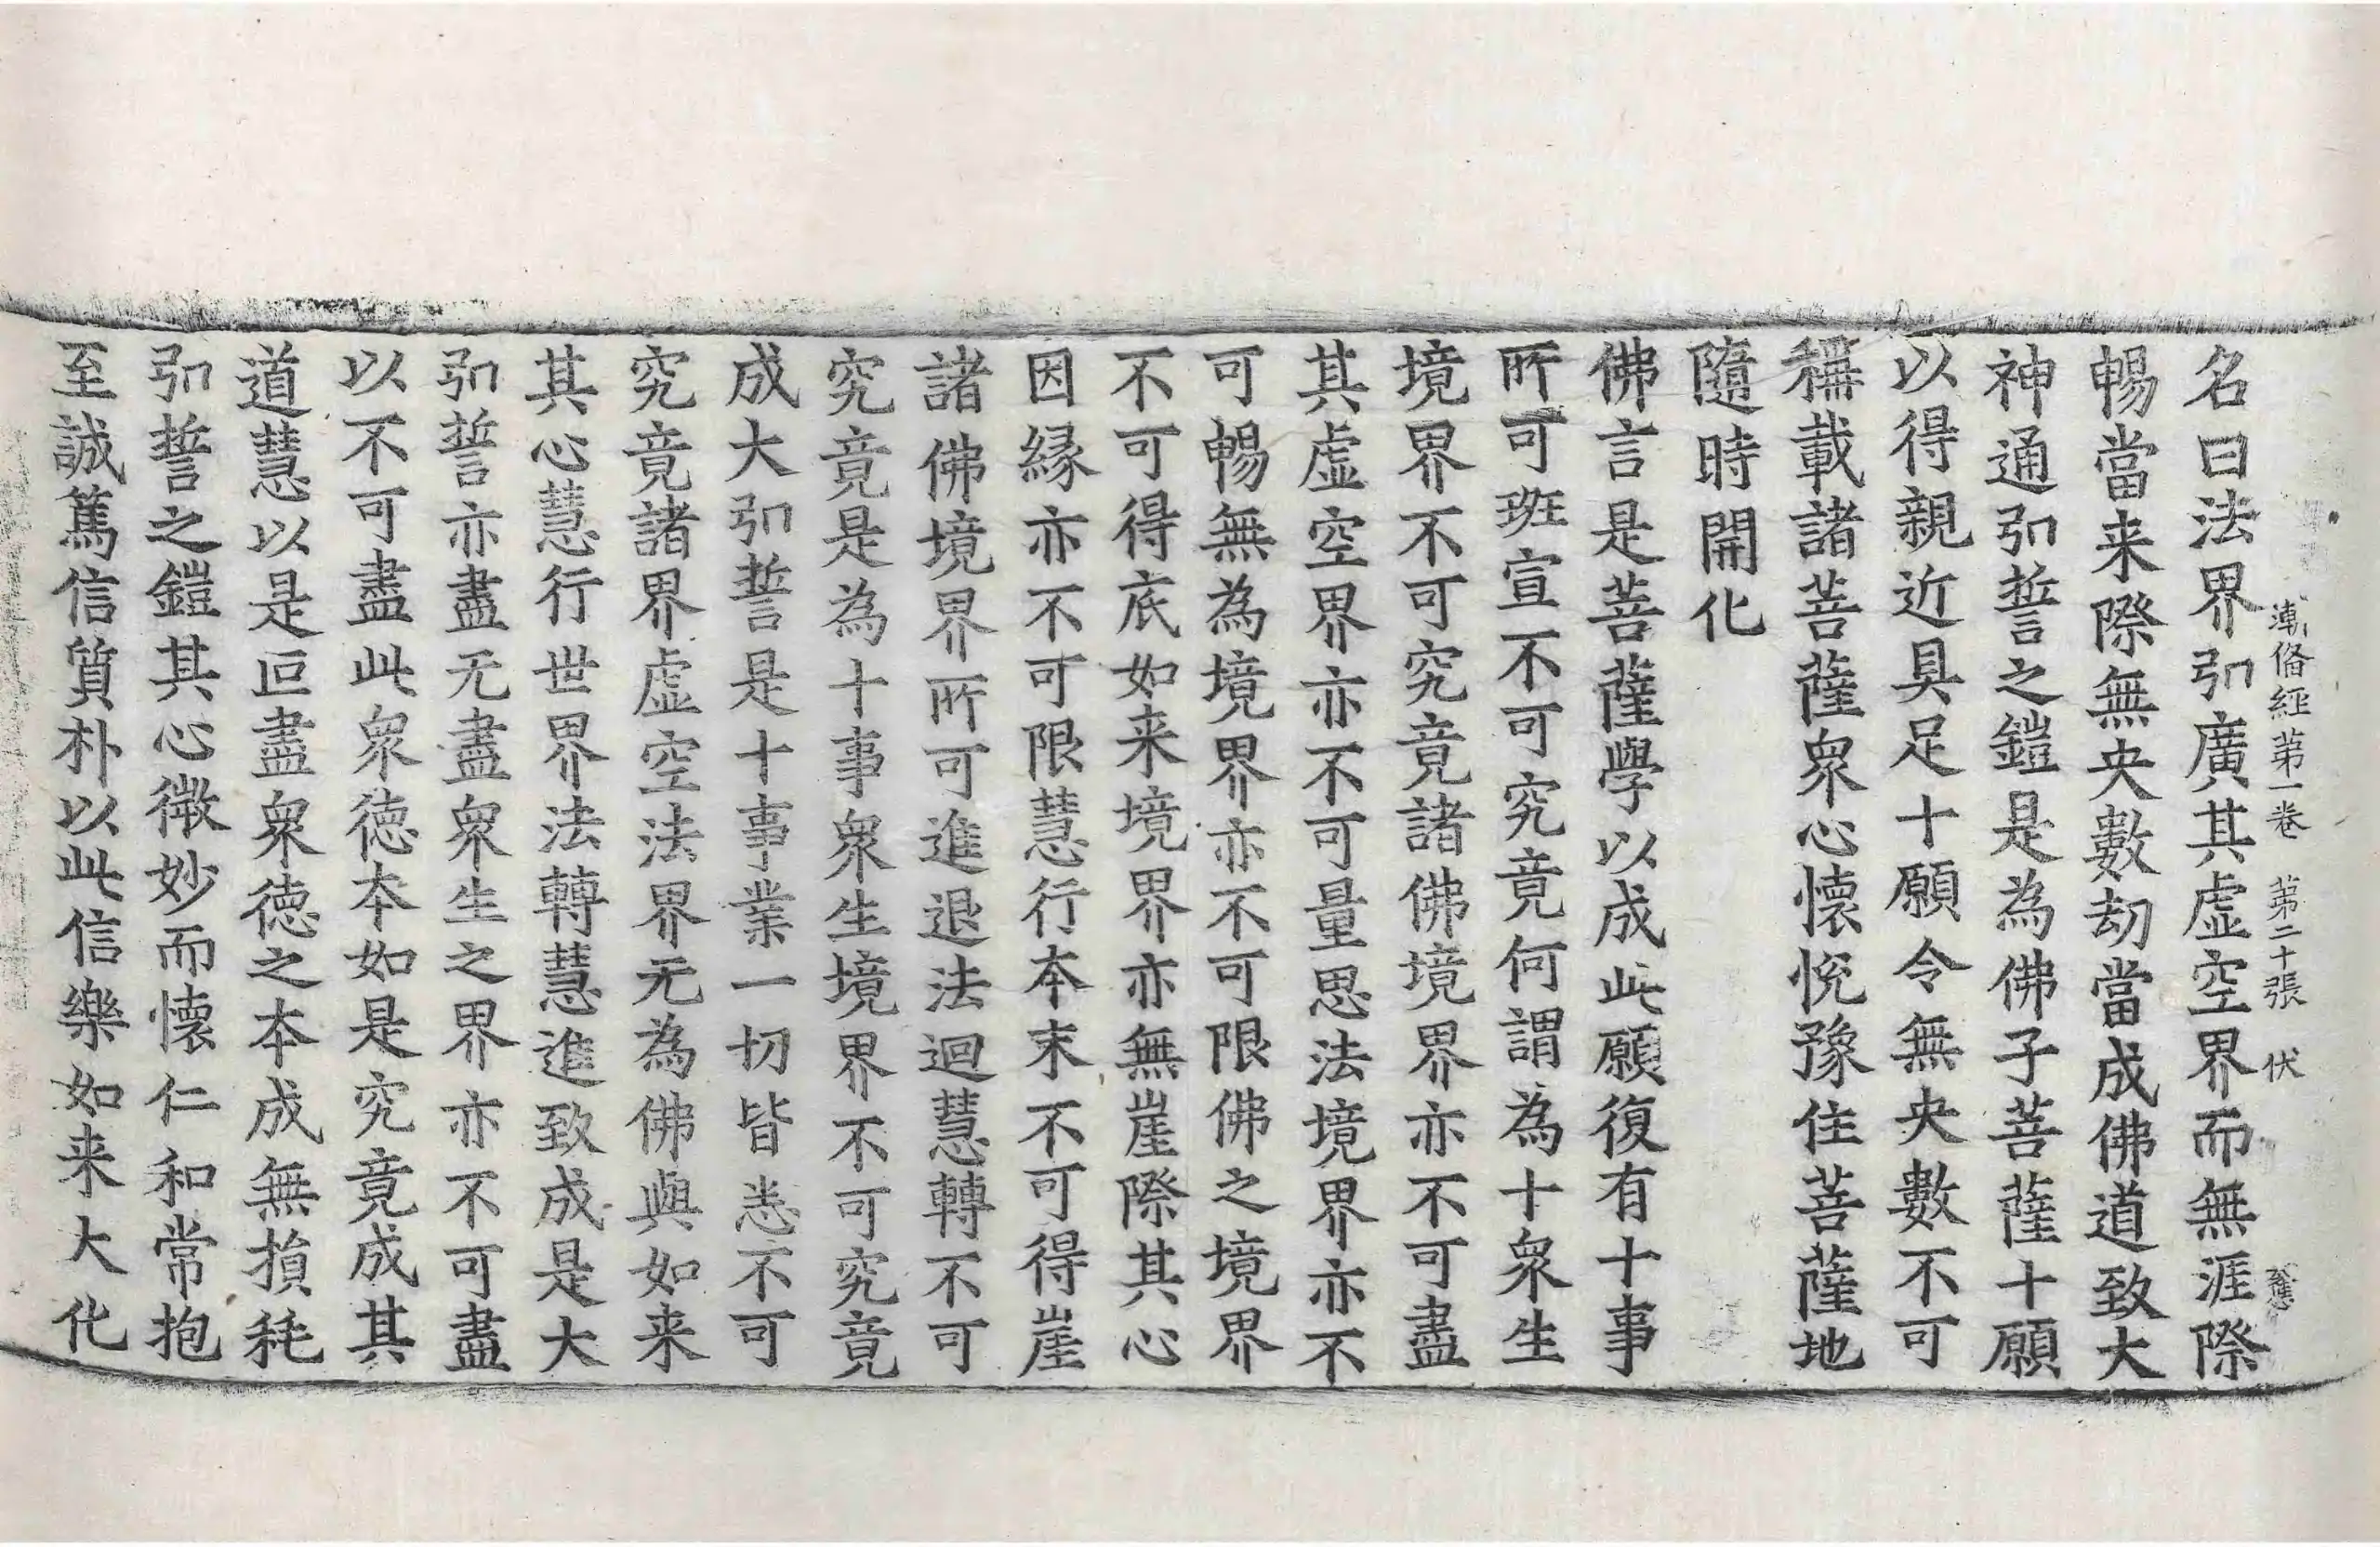 漸俻經第一卷 第二十張 伏
名曰法界弘廣其虛空界而無涯際
暢當来際無央數劫當成佛道致大
神通弘誓之鎧是為佛子菩薩十願
以得親近具足十願令無央數不可
稱載諸菩薩衆心懷恱豫住菩薩地
隨時開化
佛言是菩薩學以成此願復有十事
所可班宣不可究竟何謂為十衆生
境界不可究竟諸佛境界亦不可盡
其虛空界亦不可量思法境界亦不
可暢無為境界亦不可限佛之境界
不可得底如来境界亦無崖際其心
因縁亦不可限慧行本末不可得崖
諸佛境界所可進退法迴慧轉不可
究竟是為十事衆生境界不可究竟
成大弘誓是十事業一切皆悉不可
究竟諸界虛空法界无為佛與如来
其心慧行世界法轉慧進致成是大
弘誓亦盡无盡衆生之界亦不可盡
以不可盡此衆徳本如是究竟成其
道慧以是叵盡衆徳之本成無損耗
弘誓之鎧其心微妙而懷仁和常抱
至誠篤信質朴以此信樂如来大化